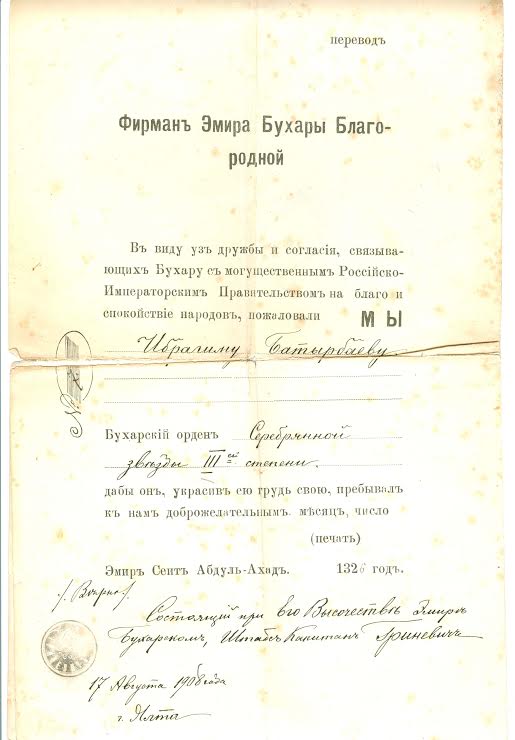 переводъ
Фирманъ Эмира Бухары Благо-
родной
Въ виду узъ дружбы и согласія, связыва-
ющихъ Бухару съ могущественнымъ Россійско-
Императорскимъ Правительствомъ на благо и
спокойствіе народовъ, пожаловали МЫ
Ибрагиму Батырбаеву
№
Бухарскій орденъ Серебрянной
звѣзды III ей степени.
дабы онъ, украсивъ ею грудь свою, пребывалъ
къ намъ доброжелательнымъ. мѣсяцъ, число
(печать)
Эмиръ Сеитъ Абдулъ-Ахадъ. 1326 годъ.
/. Вѣрно /.
Состоящій при Его Высочествѣ Эмирѣ
Бухарскомъ, Штабсъ Капитанъ Гриневичъ
17 Августа 1908 года
г. Ялта